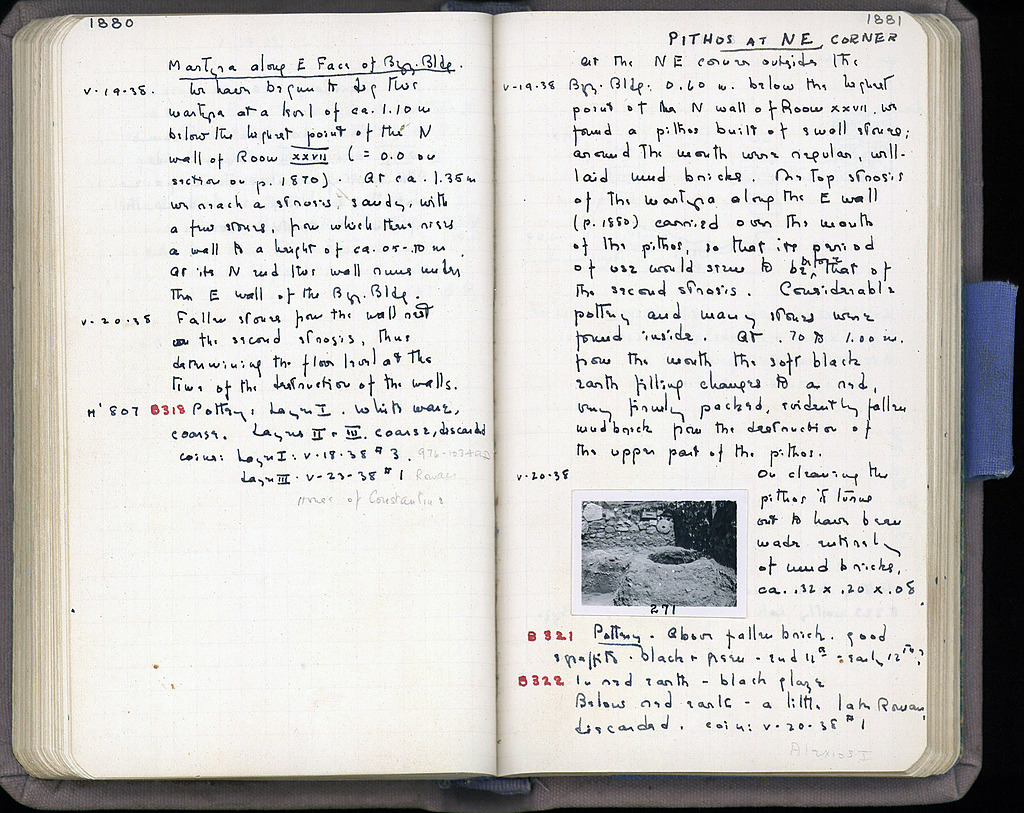 1880
Martyra along E Face of Byz. Bldg.
V-19-38. We have begun to dig this
martyra at a level of ca. 1.10 m
below the highest point of the N
wall of Room XXVII (= 0.0 on
section on p. 1870). At ca. 1.35m
we reach a strosis, sandy, with
a few stones, from which there rises
a wall to a height of ca. .05-.10 m.
At its N end this wall runs under
the E wall of the Byz. Bldg.
V-20-38 Fallen stones from the wall rest
on the second strosis, thus
determining the floor level at the
time of the destruction of the walls.
H' 807 B318 Pottery: Layer I. White ware,
coarse. Layers II + III. coarse, discarded
coins: Layer I: V-18-38 #3. 976-1034 AD
Layer III. V-23-38 #1 Roman
House of Constantine
1881
PITHOS AT NE CORNER
At the NE corner outside the
V-19-38 Byz. Bldg. 0.60 m. below the highest
point of the N wall of Room XXVII we
found a pithos built of small stones;
around the mouth were regular, well-
laid mud bricks. The top strosis
of the martyra along the E wall
(p. 1880) carried over the mouth
of the pithos, so that its period
of use would seem to be before that of
the second strosis. Considerable
pottery and many stones were
found inside. At .70 to 1.00 m.
from the mouth the soft black
earth filling changes to a red,
very firmly packed, evidently fallen
mudbrick from the destruction of
the upper part of the pithos.
V-20-38 On cleaning the
pithos it turns
out to have been
made entirely
of mud bricks,
ca. .32 x .20 x .08
271
B321 Pottery. Above fallen brick. good
sgraffito. black + green - end 11th - early 12th?
B322 In red earth - black glaze
Below red earth - a little late Roman,
discarded. coin: V-20-38 #1
Alexios I